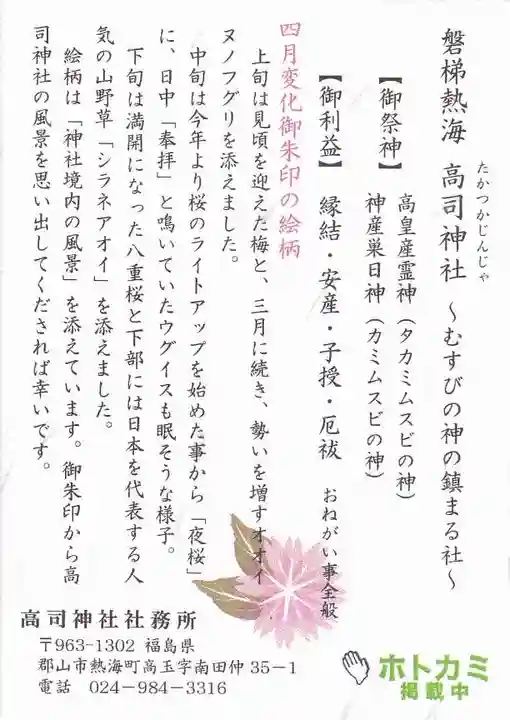 磐梯熱海 高司神社 ～むすびの神の鎮まる社～
たかつかじんじゃ
【御祭神】 高皇産霊神（タカミムスビの神）
神産巣日神（カミムスビの神）
【御利益】 縁結・安産・子授・厄祓 おねがい事全般
四月変化御朱印の絵柄
上旬は見頃を迎えた梅と、三月に続き、勢いを増すオオイ
ヌノフグリを添えました。
中旬は今年より桜のライトアップを始めた事から「夜桜」
に、日中「奉拝」と鳴いていたウグイスも眠そうな様子。
下旬は満開になった八重桜と下部には日本を代表する人
気の山野草「シラネアオイ」を添えました。
絵柄は「神社境内の風景」を添えています。御朱印から高
司神社の風景を思い出してくだされば幸いです。
高司神社社務所
〒963-1302 福島県
郡山市熱海町高玉字南田仲 35－1
電話 024-984-3316
ホトカミ
掲載中